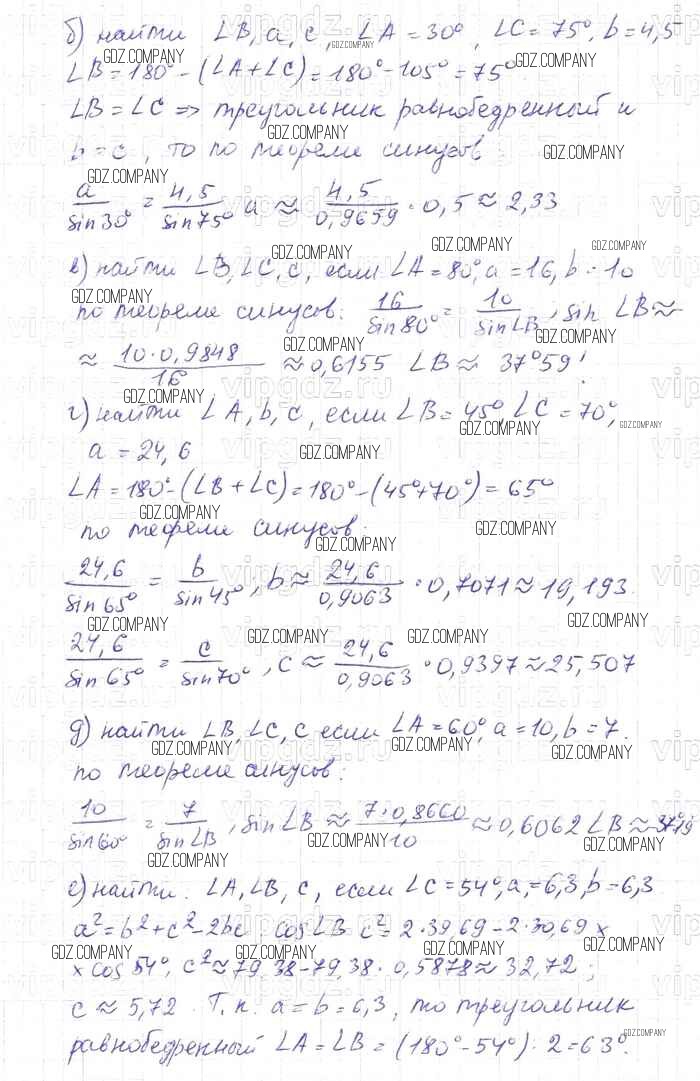 б) найти ∠B, a, c, ∠A = 30°, ∠C = 75°, b = 4,5
∠B = 180° - (∠A + ∠C) = 180° - 105° = 75°
∠B = ∠C => треугольник равнобедренный и
b = c, то по теореме синусов
a/sin 30° = 4,5/sin 75° a ≈ 4,5/0,9659 · 0,5 ≈ 2,33
в) найти ∠B, ∠C, c, если ∠A = 80°, a = 16, b = 10
по теореме синусов: 16/sin 80° = 10/sin ∠B, sin ∠B ≈
≈ 10 · 0,9848/16 ≈ 0,6155 ∠B ≈ 37°59'
г) найти ∠A, b, c, если ∠B = 45°, ∠C = 70°,
a = 24,6
∠A = 180° - (∠B + ∠C) = 180° - (45° + 70°) = 65°
по теореме синусов:
24,6/sin 65° = b/sin 45°, b ≈ 24,6/0,9063 · 0,7071 ≈ 19,193.
24,6/sin 65° = c/sin 70°, c ≈ 24,6/0,9063 · 0,9397 ≈ 25,507
д) найти ∠B, ∠C, c если ∠A = 60°, a = 10, b = 7.
по теореме синусов:
10/sin 60° = 7/sin ∠B, sin ∠B ≈ 7 · 0,8660/10 ≈ 0,6062 ∠B ≈ 37°19'
е) найти: ∠A, ∠B, c, если ∠C = 54°, a = 6,3, b = 6,3
a² = b² + c² - 2bc cos ∠B c² = 2 · 39,69 - 2 · 30,69 ×
× cos 54°, c² ≈ 79,38 - 79,38 · 0,5878 ≈ 32,72;
c ≈ 5,72. Т.к. a = b = 6,3, то треугольник
равнобедренный ∠A = ∠B = (180° - 54°) : 2 = 63°.
GDZ.COMPANY
vipgdz.ru